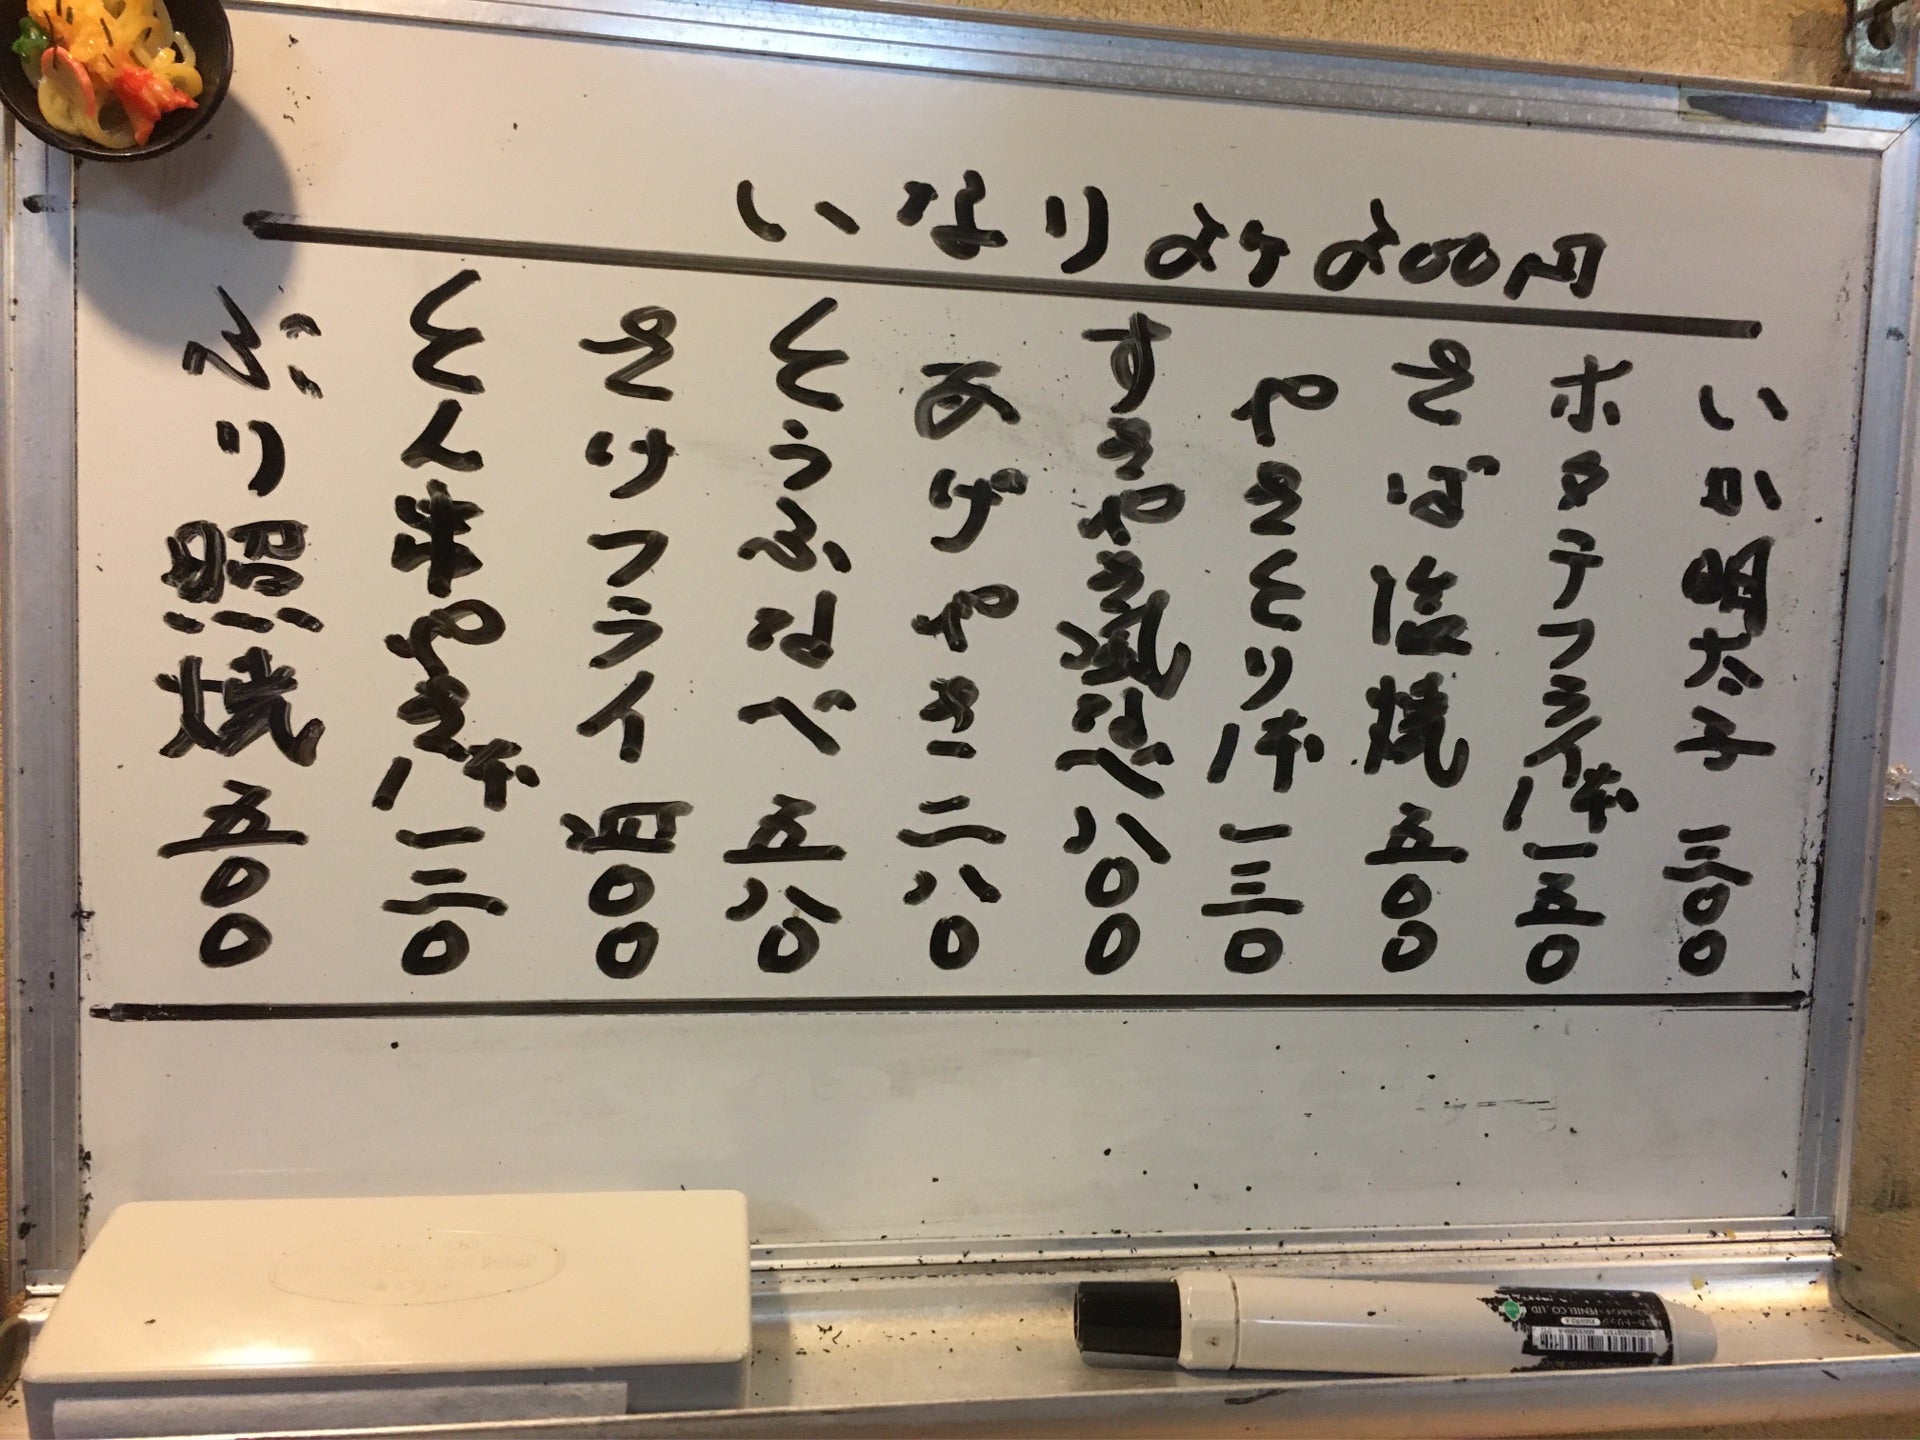 いなり2ケ200円
いか明太子 三〇〇
ホタテフライ1本 一五〇
さば塩焼 五〇〇
やきとり1本 一三〇
すきやき風なべ 八〇〇
あげやき 二八〇
とうふなべ 五八〇
さけフライ 四〇〇
とん串やき1本 一三〇
ぶり照焼 五〇〇
PENTEL CO., LTD.